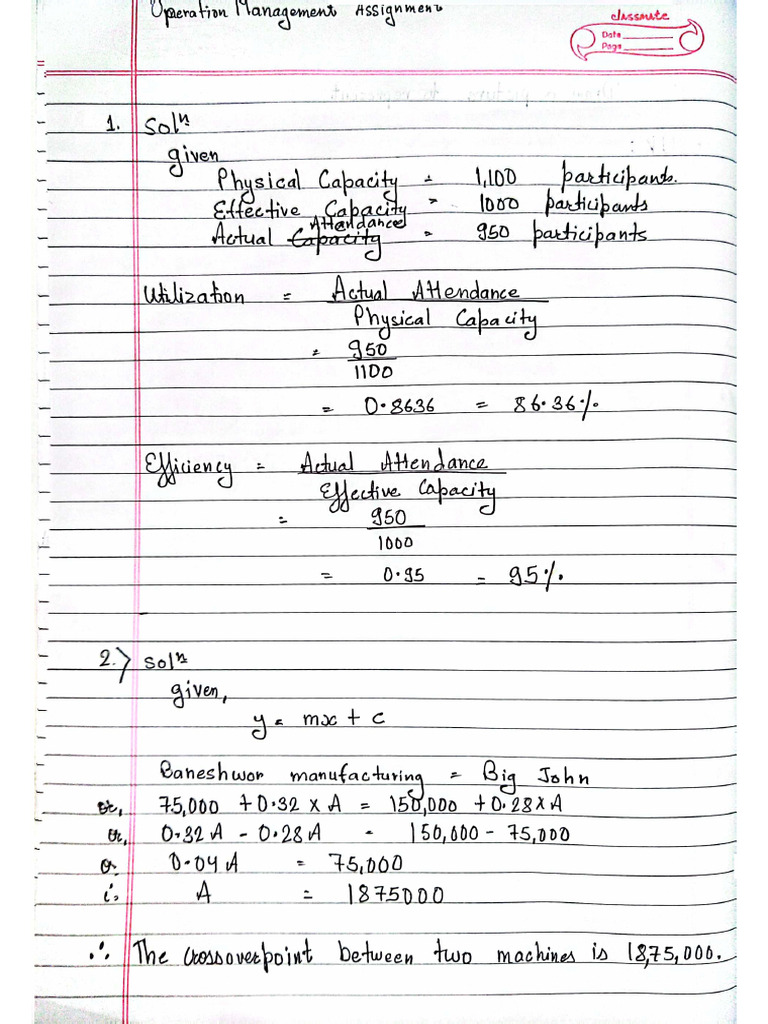 Operation Management Assignment
classmate
Date
Page
1. Solⁿ
given
Physical Capacity = 1,100 participants.
Effective Capacity = 1000 participants
Attendance
Actual Capacity = 950 participants
Utilization = Actual Attendance
Physical Capacity
= 950
1100
= 0.8636 = 86.36%
Efficiency = Actual Attendance
Effective Capacity
= 950
1000
= 0.95 = 95%.
2.) Solⁿ
given,
y = mx + c
Baneshwor manufacturing = Big John
or, 75,000 + 0.32 x A = 150,000 + 0.28 x A
or, 0.32A - 0.28A = 150,000 - 75,000
or 0.04A = 75,000
i. A = 1875000
∴ The crossoverpoint between two machines is 18,75,000.